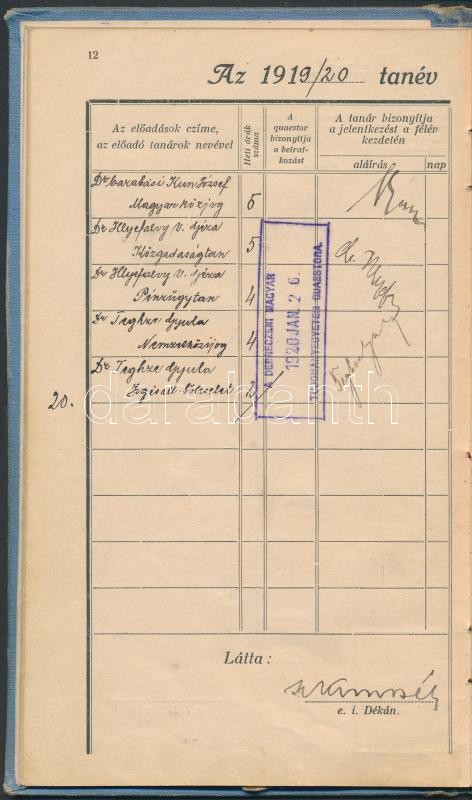 12
Az 1919/20 tanév
Az előadások czíme,
az előadó tanárok nevével
Heti órák
száma
A
quaestor
bizonyítja
a beirat-
kozást
A tanár bizonyítja
a jelentkezést a félév
kezdetén
aláírás
nap
Dr Barabási Kun József
Magyar közjog 5
Dr Illyefalvy V. Géza
Közgadaságtan 5
Dr Illyefalvy V. Géza
Pénzügytan 4
Dr Teghze Gyula
Nemzetközijog 4
Dr Teghze Gyula
2
20.
A DEBRECZENI MAGYAR
1920 JAN. 26.
TUDOMÁNYEGYETEM QUAESTORA.
darabanth
Látta:
e. i. Dékán.